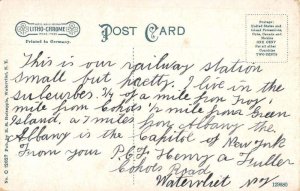 LITHO-CHROME
Printed in Germany.
POST CARD
Postage:
United States
and Island Possessions,
Cuba, Canada and
Mexico
ONE CENT
For all other
Countries
TWO CENTS
This is our railway station
small but pretty. I live in the
suburbes. 3/4 of a mile from Troy, 1
mile from Cohoes 1/2 mile from Green
Island, a 7 miles from Albany the
Albany is the Capitol of New York
From your P.G.F. Henry a Fuller
Cohoes Road
Watervliet N.Y.
129680